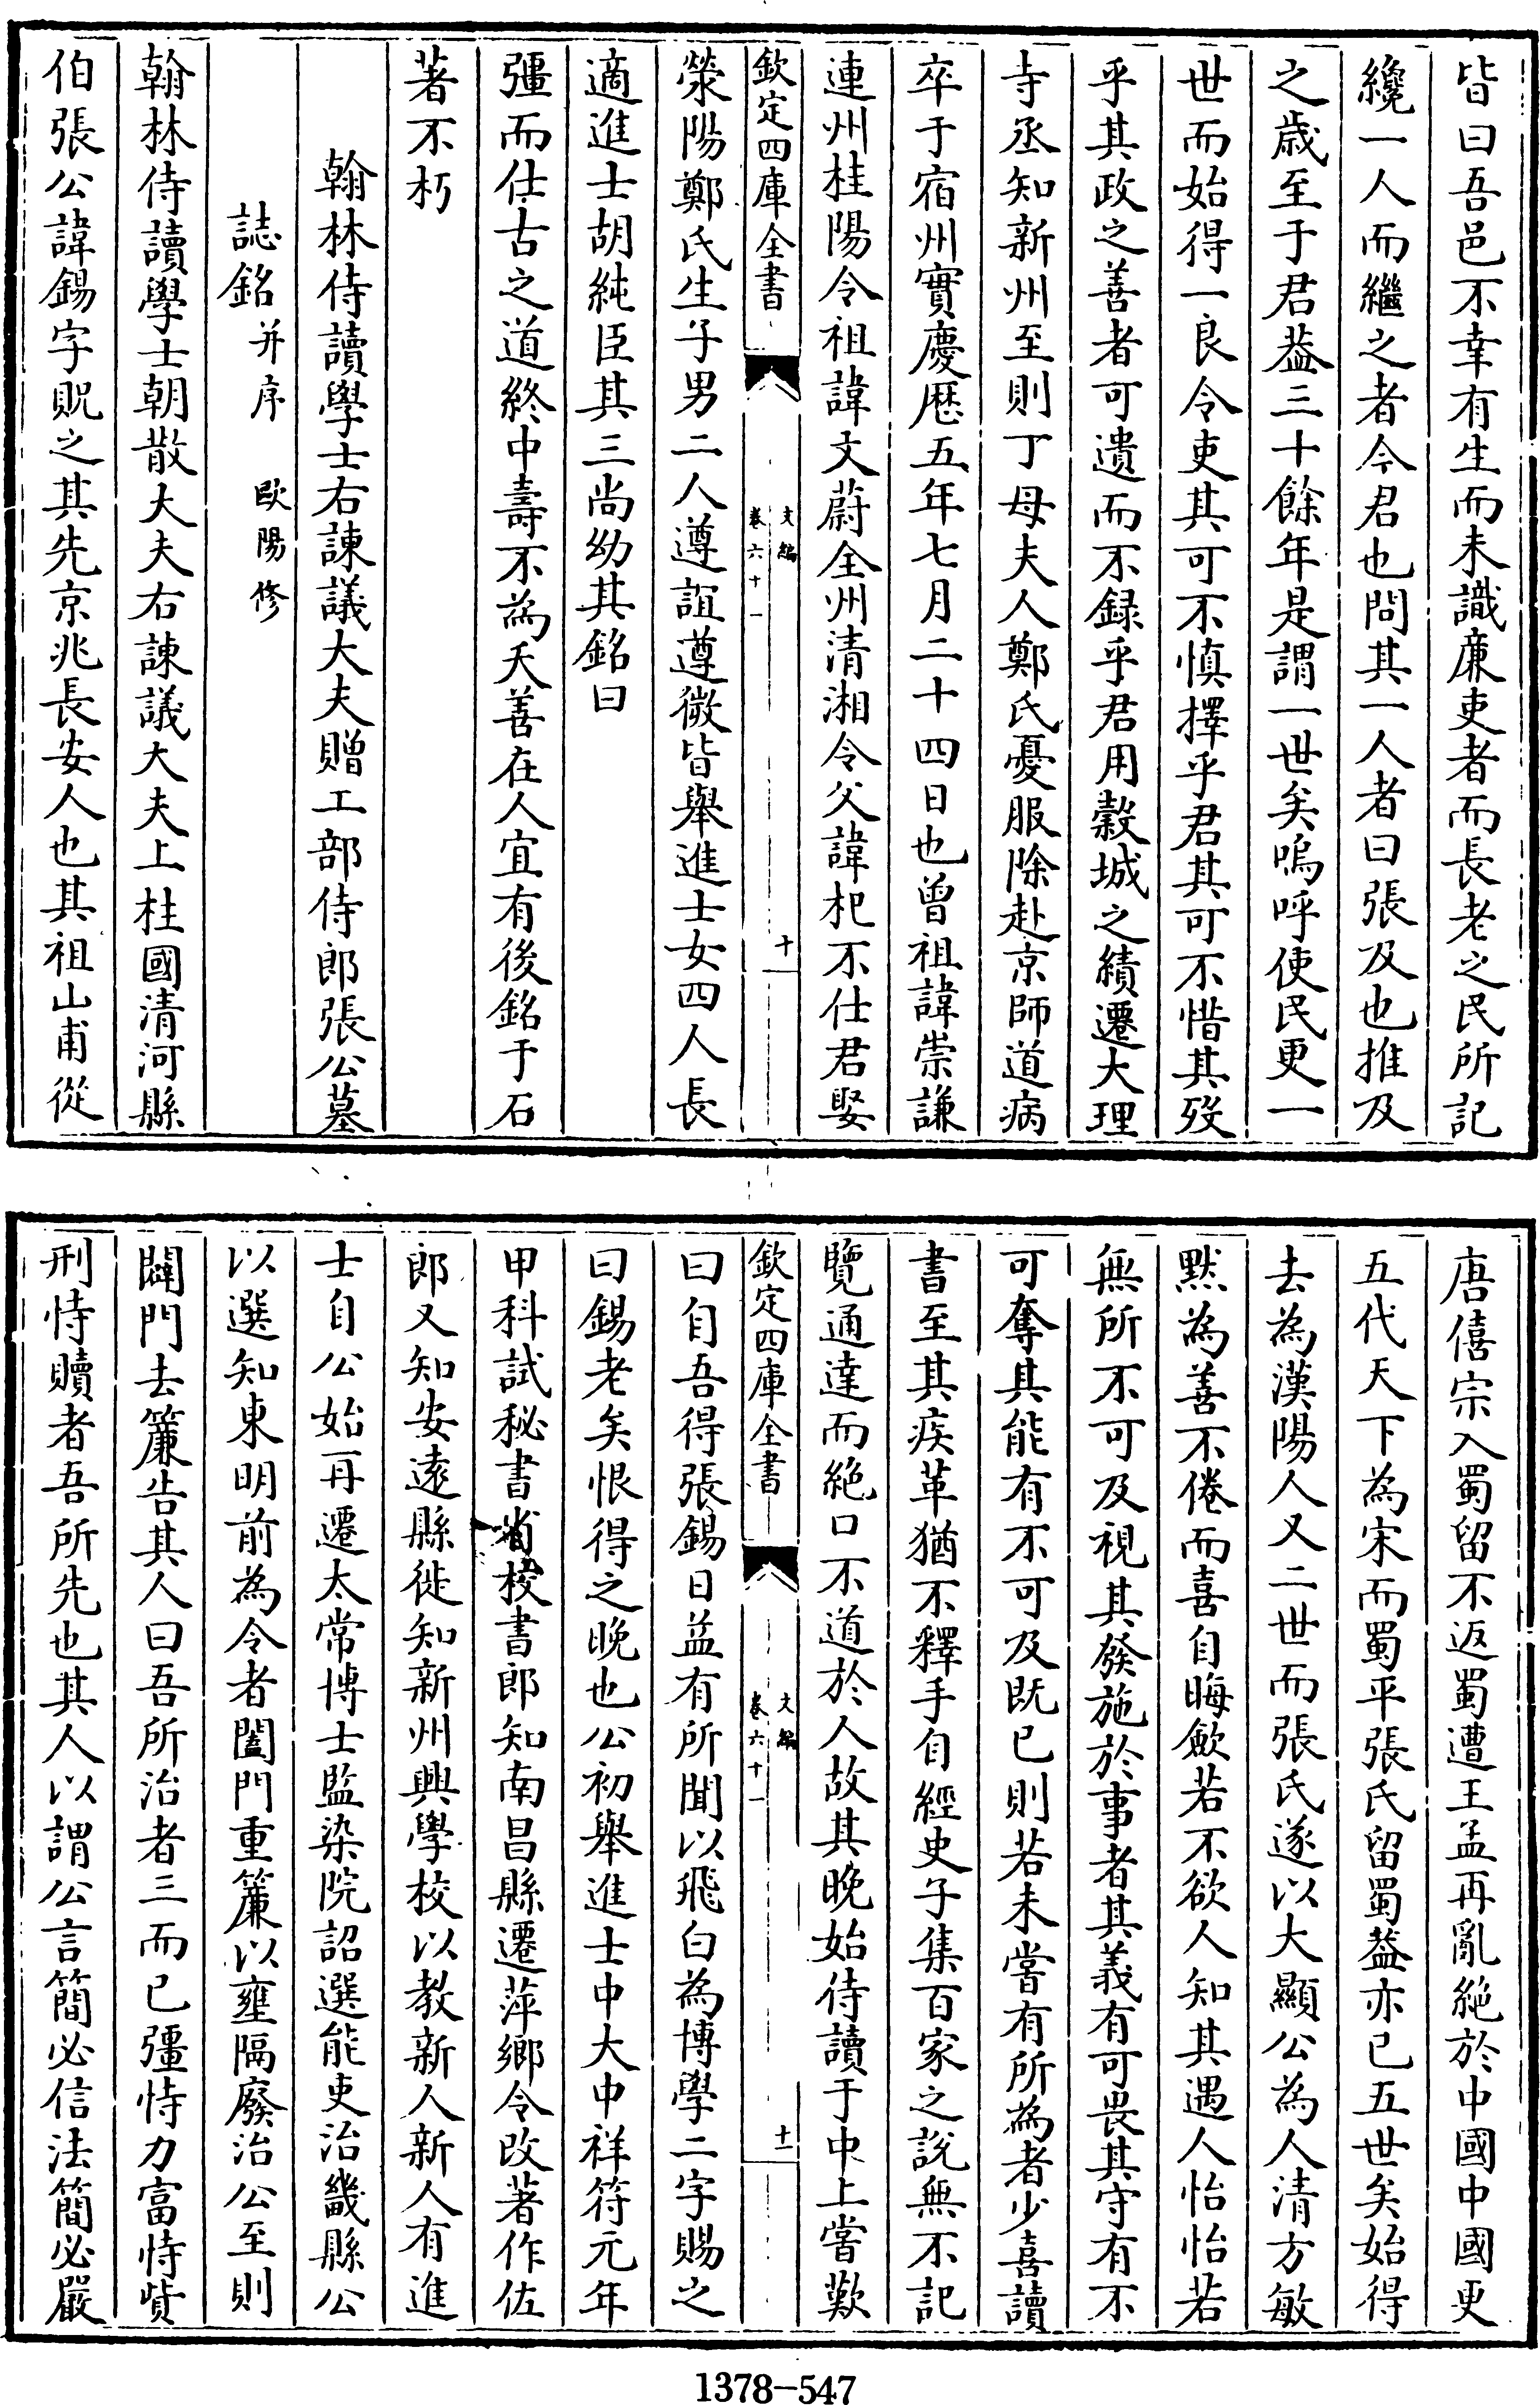 皆曰吾邑不幸有生而未識廉吏者而長老之民所記
纔一人而繼之者今君也問其一人者曰張及也推及
之歲至于君葢三十餘年是謂一世矣嗚呼使民更一
世而始得一良令吏其可不慎擇乎君其可不惜其歿
乎其政之善者可遺而不録乎君用榖城之績遷大理
寺丞知新州至則丁母夫人鄭氏憂服除赴京師道病
卒于宿州實慶厯五年七月二十四日也曾祖諱崇謙
連州桂陽令祖諱文蔚全州清湘令父諱杞不仕君娶
欽定四庫全書
文編
卷六十一
十
滎陽鄭氏生子男二人遵誼遵微皆舉進士女四人長
適進士胡純臣其三尚幼其銘曰
彊而仕古之道終中壽不為夭善在人宜有後銘于石
著不朽
翰林侍讀學士右諫議大夫贈工部侍郎張公墓
誌銘并序 歐陽修
翰林侍讀學士朝散大夫右諫議大夫上柱國清河縣
伯張公諱錫字貺之其先京兆長安人也其祖山甫從
唐僖宗入蜀留不返蜀遭王孟再亂絶於中國中國更
五代天下為宋而蜀平張氏留蜀葢亦已五世矣始得
去為漢陽人又二世而張氏遂以大顯公為人清方敏
黙為善不倦而喜自晦歛若不欲人知其遇人怡怡若
無所不可及視其發施於事者其義有可畏其守有不
可奪其能有不可及既已則若未嘗有所為者少喜讀
書至其疾革猶不釋手自經史子集百家之説無不記
覽通達而絶口不道於人故其晚始侍讀于中上嘗歎
欽定四庫全書
文編
卷六十一
十一
曰自吾得張錫日益有所聞以飛白為博學二字賜之
曰錫老矣恨得之晚也公初舉進士中大中祥符元年
甲科試秘書省校書郎知南昌縣遷萍鄉令改著作佐
郎又知安逺縣徙知新州興學校以教新人新人有進
士自公始再遷太常博士監染院詔選能吏治畿縣公
以選知東明前為令者闔門重簾以壅隔廢治公至則
闢門去簾告其人曰吾所治者三而已彊恃力富恃貲
刑恃贖者吾所先也其人以謂公言簡必信法簡必嚴
1378-547